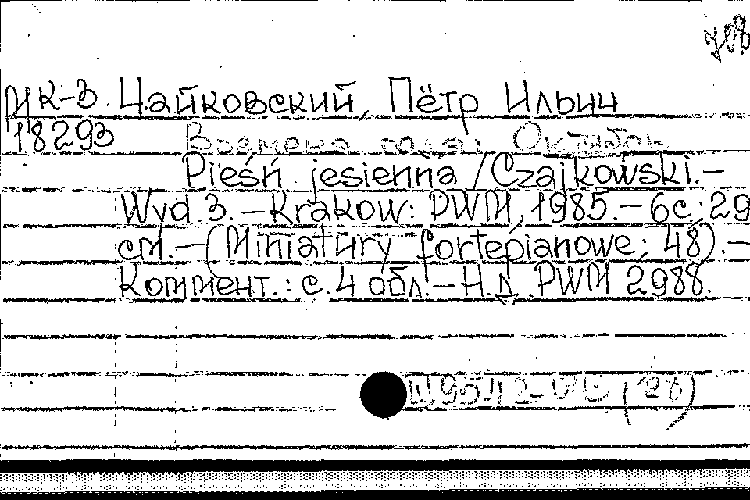 МК-3 Чайковский, Пётр Ильич
18293 Времена года: Октябрь
Pieśń jesienna / Czajkowski.-
Wyd. 3. - Kraków: PWM, 1985. - 6с; 29
см. - (Miniatury fortepianowe; 48). -
Коммент.: с. 4 обл. - Н.д. PWM 2988.